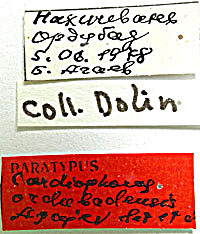 Нахичевань
Ордубад
5.06.1978
Б. Агаев
coll. Dolin
PARATYPUS
Cardiophorus
ordubadensis
Agajev det